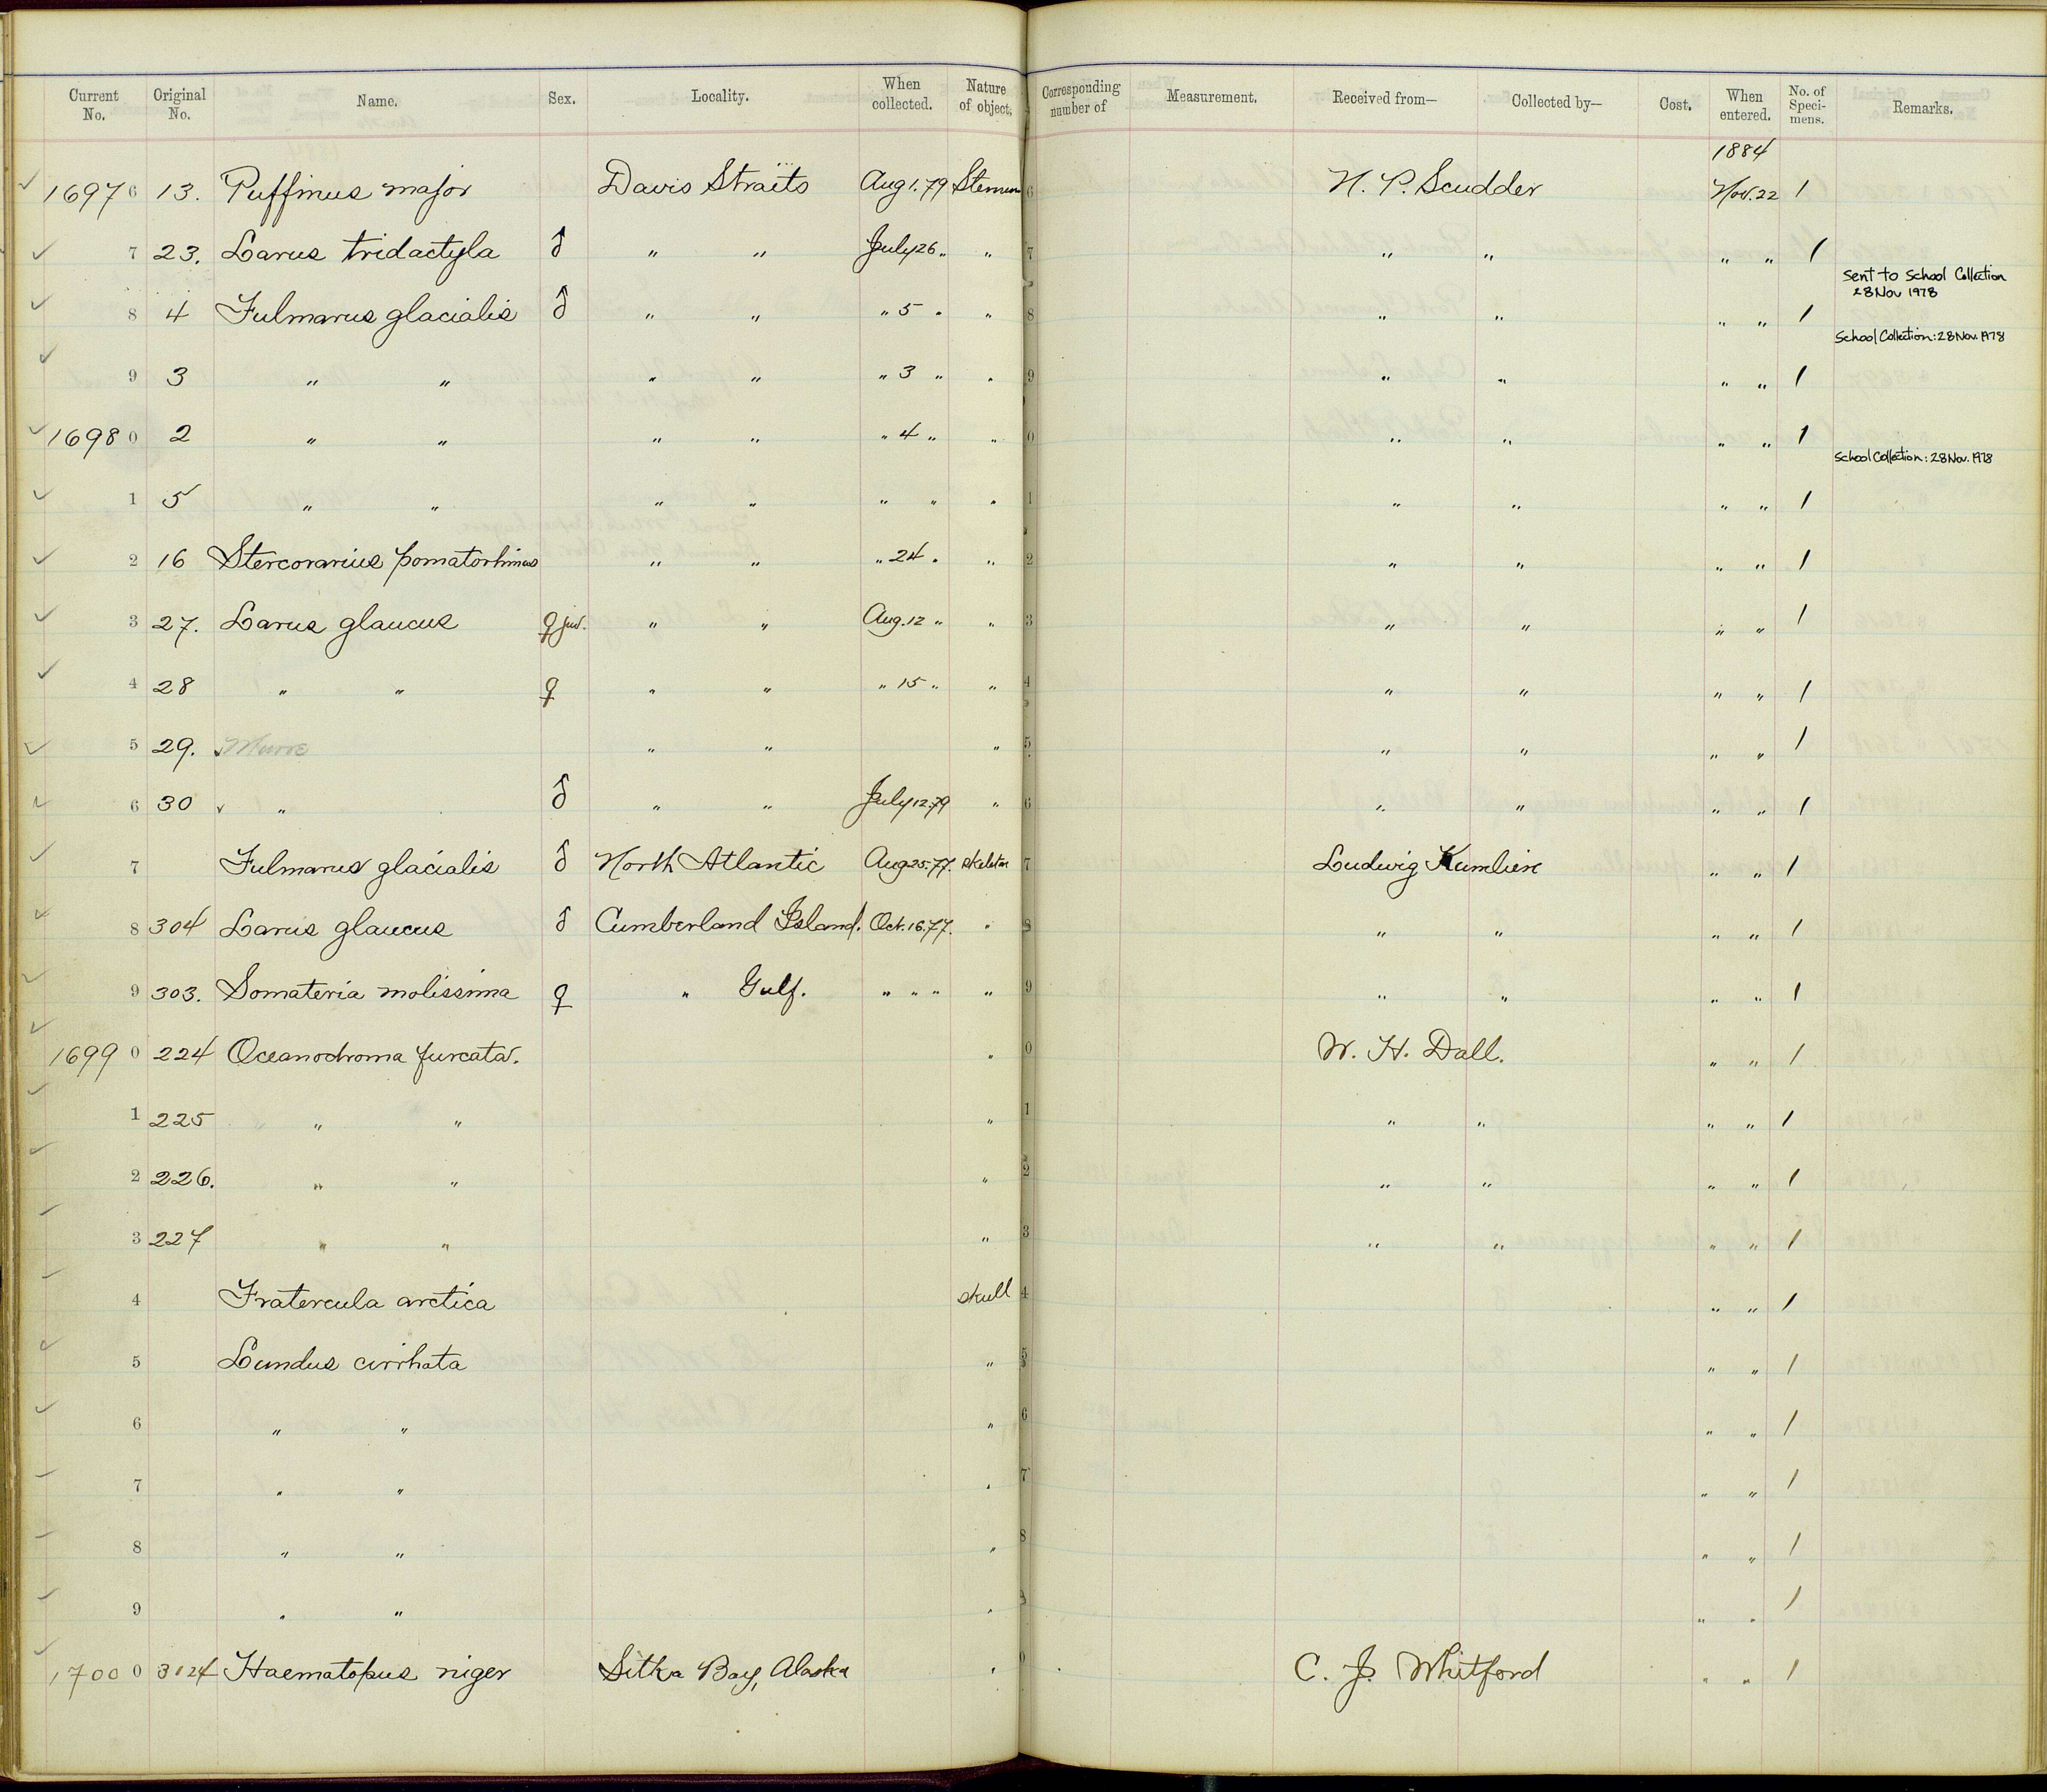 Current No. Original No. Name. Sex. Locality. When collected. Nature of object. Corresponding number of Measurement. Received from— Collected by— Cost. When entered. No. of Speci-mens. Remarks.
1884
1697 6 13. Puffinus major Davis Straits Aug 1.79 Sternum 6 N. P. Scudder Nov. 22 1
7 23. Larus tridactyla ♂ " " July 26 " " 7 " " " " 1
Sent to School Collection
28 Nov 1978
8 4 Fulmarus glacialis ♂ " " " 5 " " 8 " " " " 1
School Collection: 28 Nov. 1978
9 3 " " " " " 3 " " 9 " " " " 1
1698 0 2 " " " " " 4 " " 0 " " " " 1
School Collection: 28 Nov. 1978
1 5 " " " " " " " 1 " " " " 1
2 16 Stercorarius pomatorhinus " " " 24 " " 2 " " " " 1
3 27. Larus glaucus ♀ juv. " " Aug. 12 " " 3 " " " " 1
4 28 " " ♀ " " " 15 " " 4 " " " " 1
5 29. Murre " " " 5 " " " " 1
6 30 " ♂ " " July 12.79 " 6 " " " " 1
7 Fulmarus glacialis ♂ North Atlantic Aug 25.77. Skeleton 7 Ludwig Kumlien " " 1
8 304 Larus glaucus ♂ Cumberland Island. Oct. 16.77. " 8 " " " " 1
9 303. Somateria molissima ♀ " Gulf. " " " " 9 " " " " 1
1699 0 224 Oceanodroma furcata. " 0 W. H. Dall. " " 1
1 225 " " " 1 " " " " 1
2 226. " " " 2 " " " " 1
3 227 " " " 3 " " " " 1
4 Fratercula arctica Skull 4 " " 1
5 Lundus cirrhata " 5 " " 1
6 " " " 6 " " 1
7 " " " 7 " " 1
8 " " " 8 " " 1
9 " " " 9 " " 1
1700 0 3124 Haematopus niger Sitka Bay, Alaska " 0 C. J. Whitford " " 1